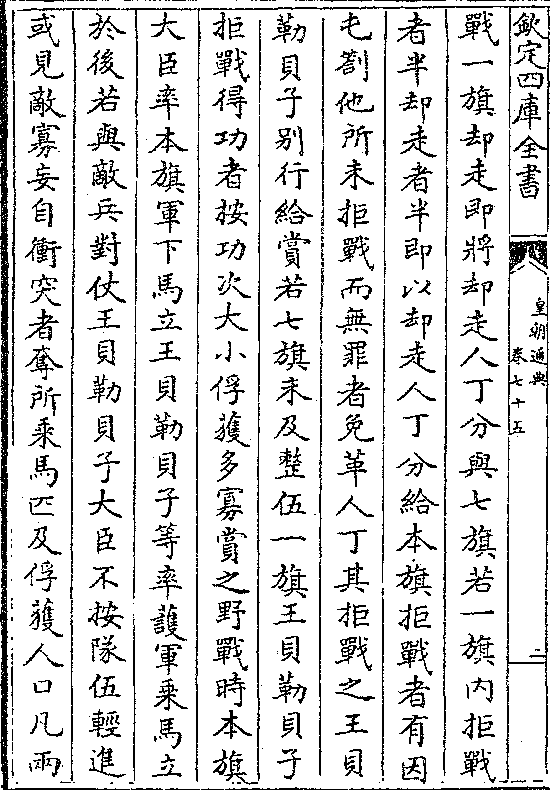 欽定四庫全書
皇朝通典
卷七十五
二
戰一旗却走即將却走人丁分與七旗若一旗内拒戰
者半却走者半即以却走人丁分給本旗拒戰者有因
屯劄他所未拒戰而無罪者免革人丁其拒戰之王貝
勒貝子别行給賞若七旗未及整伍一旗王貝勒貝子
拒戰得功者按功次大小俘獲多寡賞之野戰時本旗
大臣率本旗軍下馬立王貝勒貝子等率護軍乘馬立
於後若與敵兵對仗王貝勒貝子大臣不按隊伍輕進
或見敵寡妄自衝突者奪所乘馬匹及俘獲人口凡兩